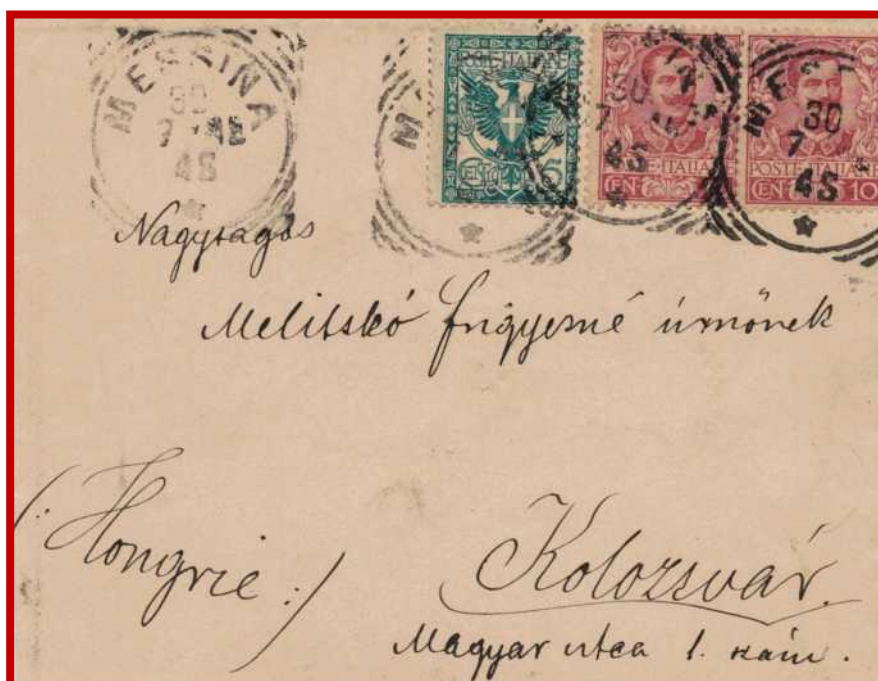 MESSINA
30
7
4S
POSTE ITALIANE
CEN 5
30
7
4S
CEN
30
7
4S
POSTE ITALIANE
CEN 10
Nagysagos
Melitskó frigyesné úrnőnek
(: Hongrie :)
Kolozsvár.
Magyar utca 1. szám.